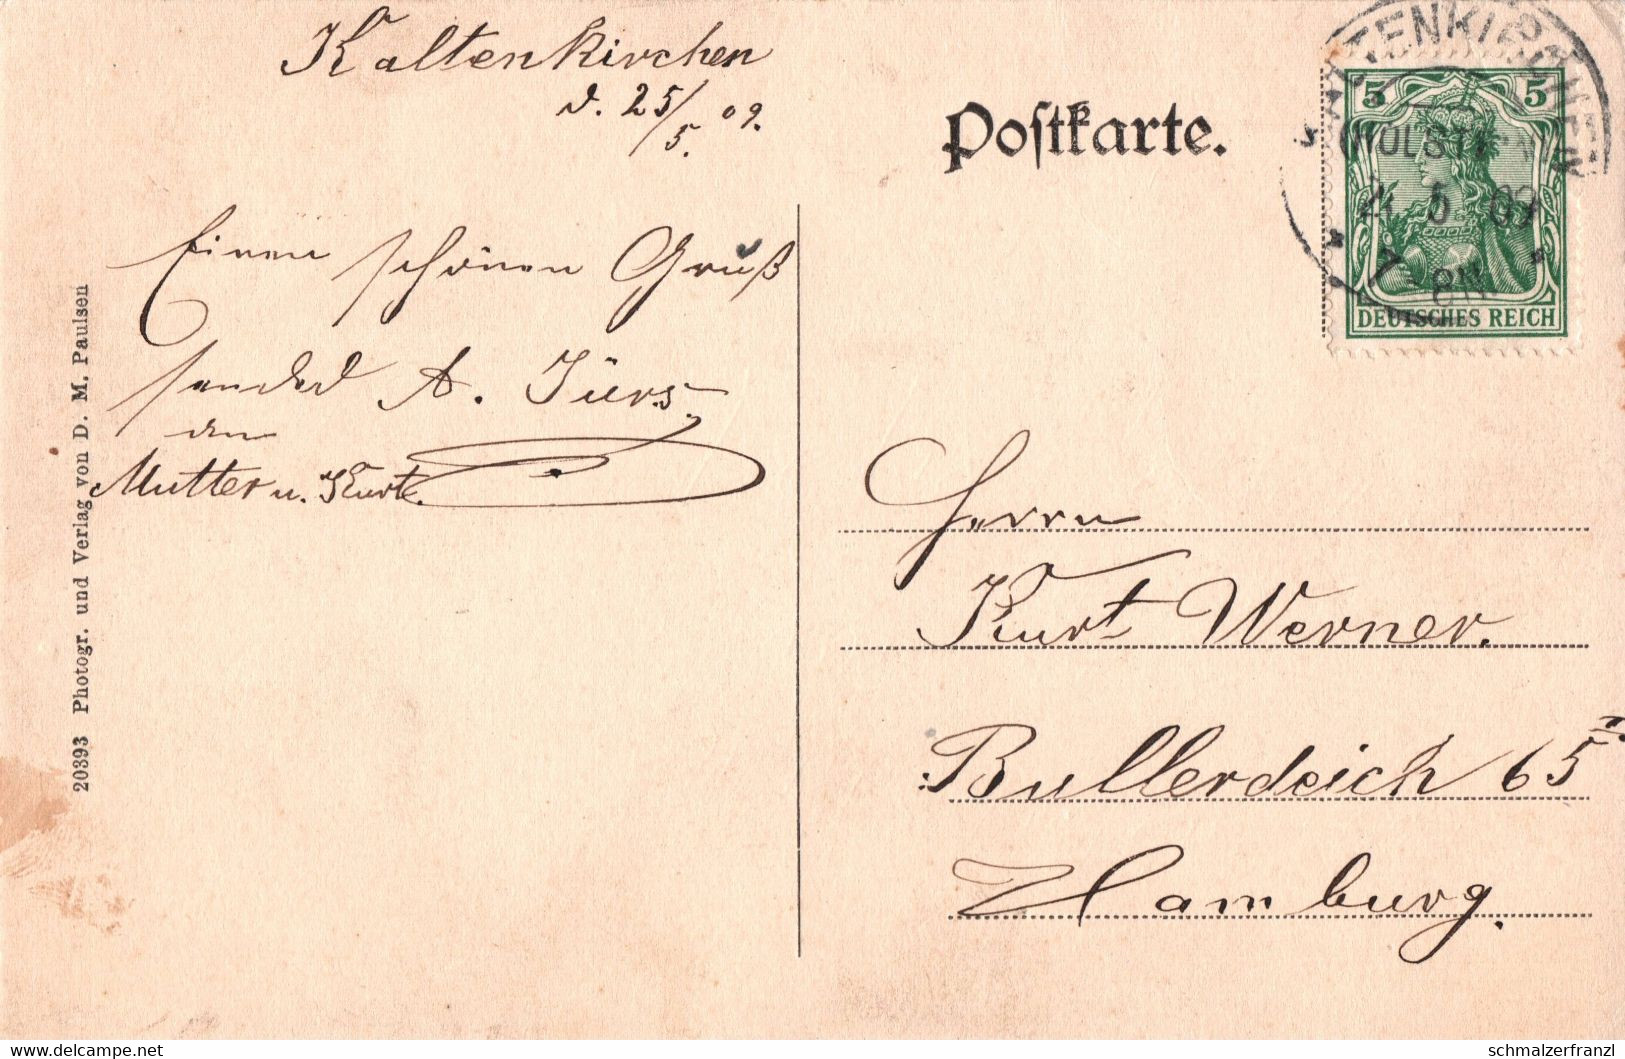 Kaltenkirchen
d. 25/5. 09.
Einen schönen Gruß
sendet A. Jürs.
an
Mutter u. Kurt.
20393 Photogr. und Verlag von D. M. Paulsen
Postkarte.
KALTENKIRCHEN
(HOLSTEIN)
5 09
7-8N
5 5
DEUTSCHES REICH
Herrn
Kurt Werner.
Bullerdeich 65 I.
Hamburg.
http://www.delcampe.net
schmalzerfranzl